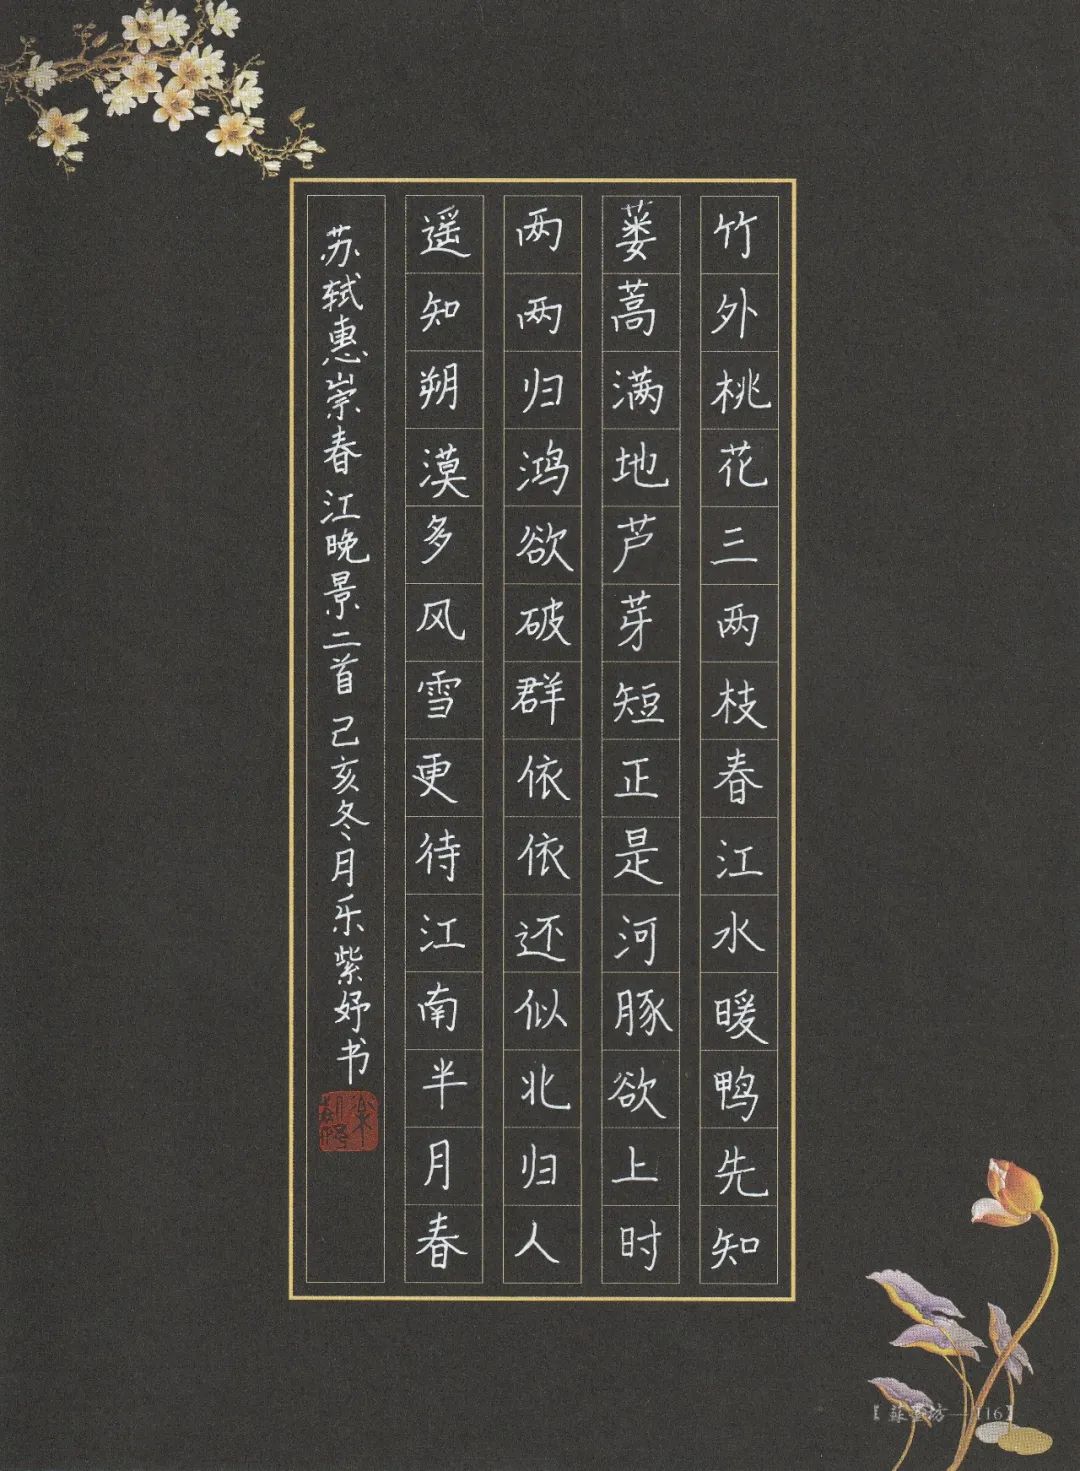 竹外桃花三两枝春江水暖鸭先知
蒌蒿满地芦芽短正是河豚欲上时
两两归鸿欲破群依依还似北归人
遥知朔漠多风雪更待江南半月春
苏轼惠崇春江晚景二首 己亥冬月乐紫妤书